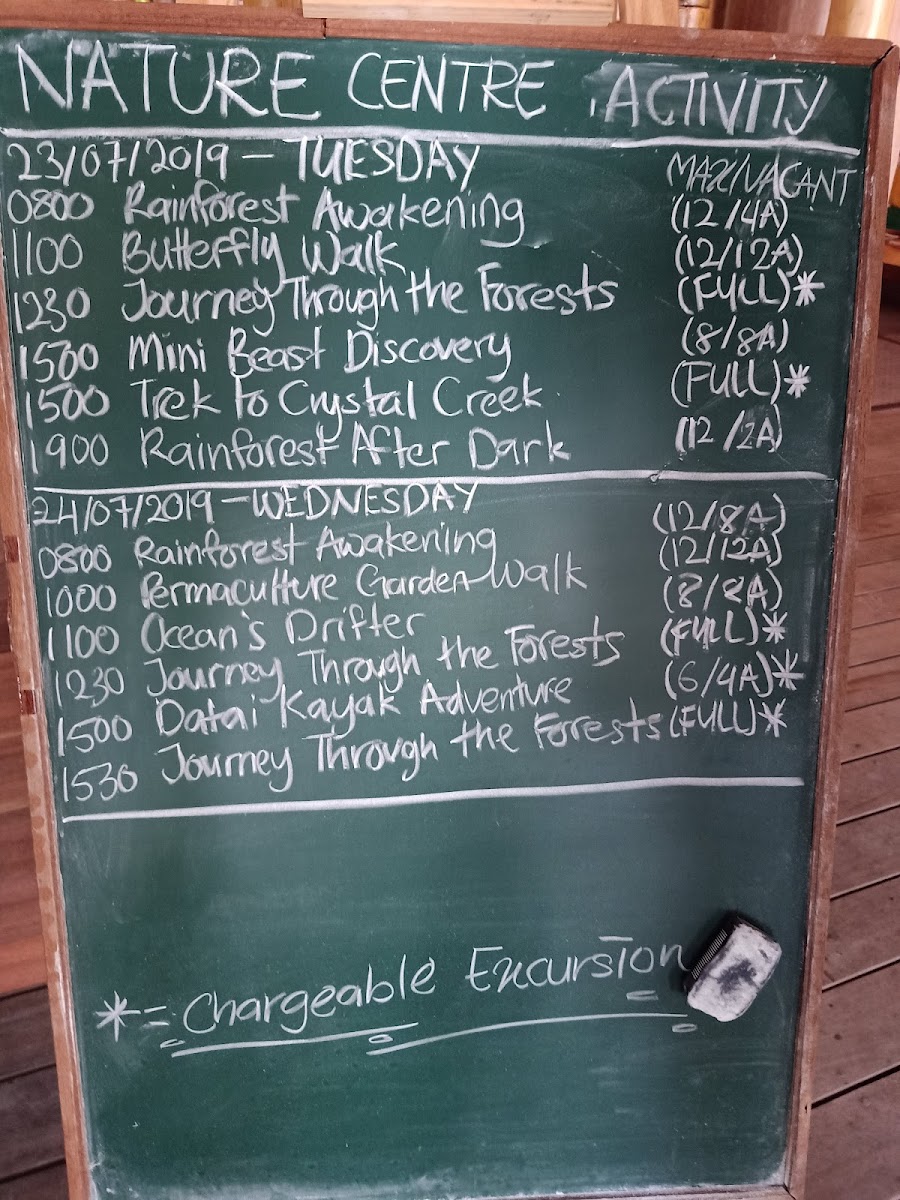 NATURE CENTRE ACTIVITY
23/07/2019 - TUESDAY MAX/VACANT
0800 Rainforest Awakening (12/4A)
1100 Butterfly Walk (12/12A)
1230 Journey Through the Forests (FULL)*
1500 Mini Beast Discovery (8/8A)
1500 Trek to Crystal Creek (FULL)*
1900 Rainforest After Dark (12/2A)
24/07/2019 - WEDNESDAY
0800 Rainforest Awakening (12/8A)
1000 Permaculture Garden Walk (12/12A)
1100 Ocean's Drifter (8/8A)
1230 Journey Through the Forests (FULL)*
1500 Datai Kayak Adventure (6/4A)*
1530 Journey Through the Forests (FULL)*
* = Chargeable Excursion